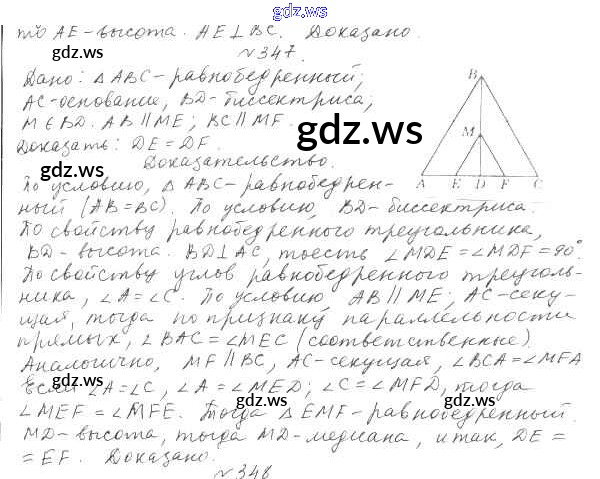 gdz.ws
то AE-высота. AE⊥BC. Доказано.
gdz.ws
№347.
Дано: △ABC-равнобедренный;
AC-основание, BD-биссектриса;
M∈BD. AB∥ME; BC∥MF.
gdz.ws
gdz.ws
Доказать: DE=DF.
Доказательство.
B
M
A E D F C
По условию, △ABC-равнобедрен-
ный (AB=BC). По условию, BD-биссектриса.
gdz.ws
gdz.ws
По свойству равнобедренного треугольника,
BD-высота. BD⊥AC, тоесть ∠MDE=∠MDF=90°.
По свойству углов равнобедренного треуголь-
ника, ∠A=∠C. По условию, AB∥ME; AC-секу-
gdz.ws
щая, тогда по признаку параллельности
прямых, ∠BAC=∠MEC (соответственные).
Аналогично, MF∥BC, AC-секущая, ∠BCA=∠MFA
gdz.ws
gdz.ws
Если ∠A=∠C, ∠A=∠MED; ∠C=∠MFD, тогда
∠MEF=∠MFE. Тогда △EMF-равнобедренный.
MD-высота, тогда MD-медиана, итак, DE=
=EF. Доказано.
gdz.ws
gdz.ws
№348